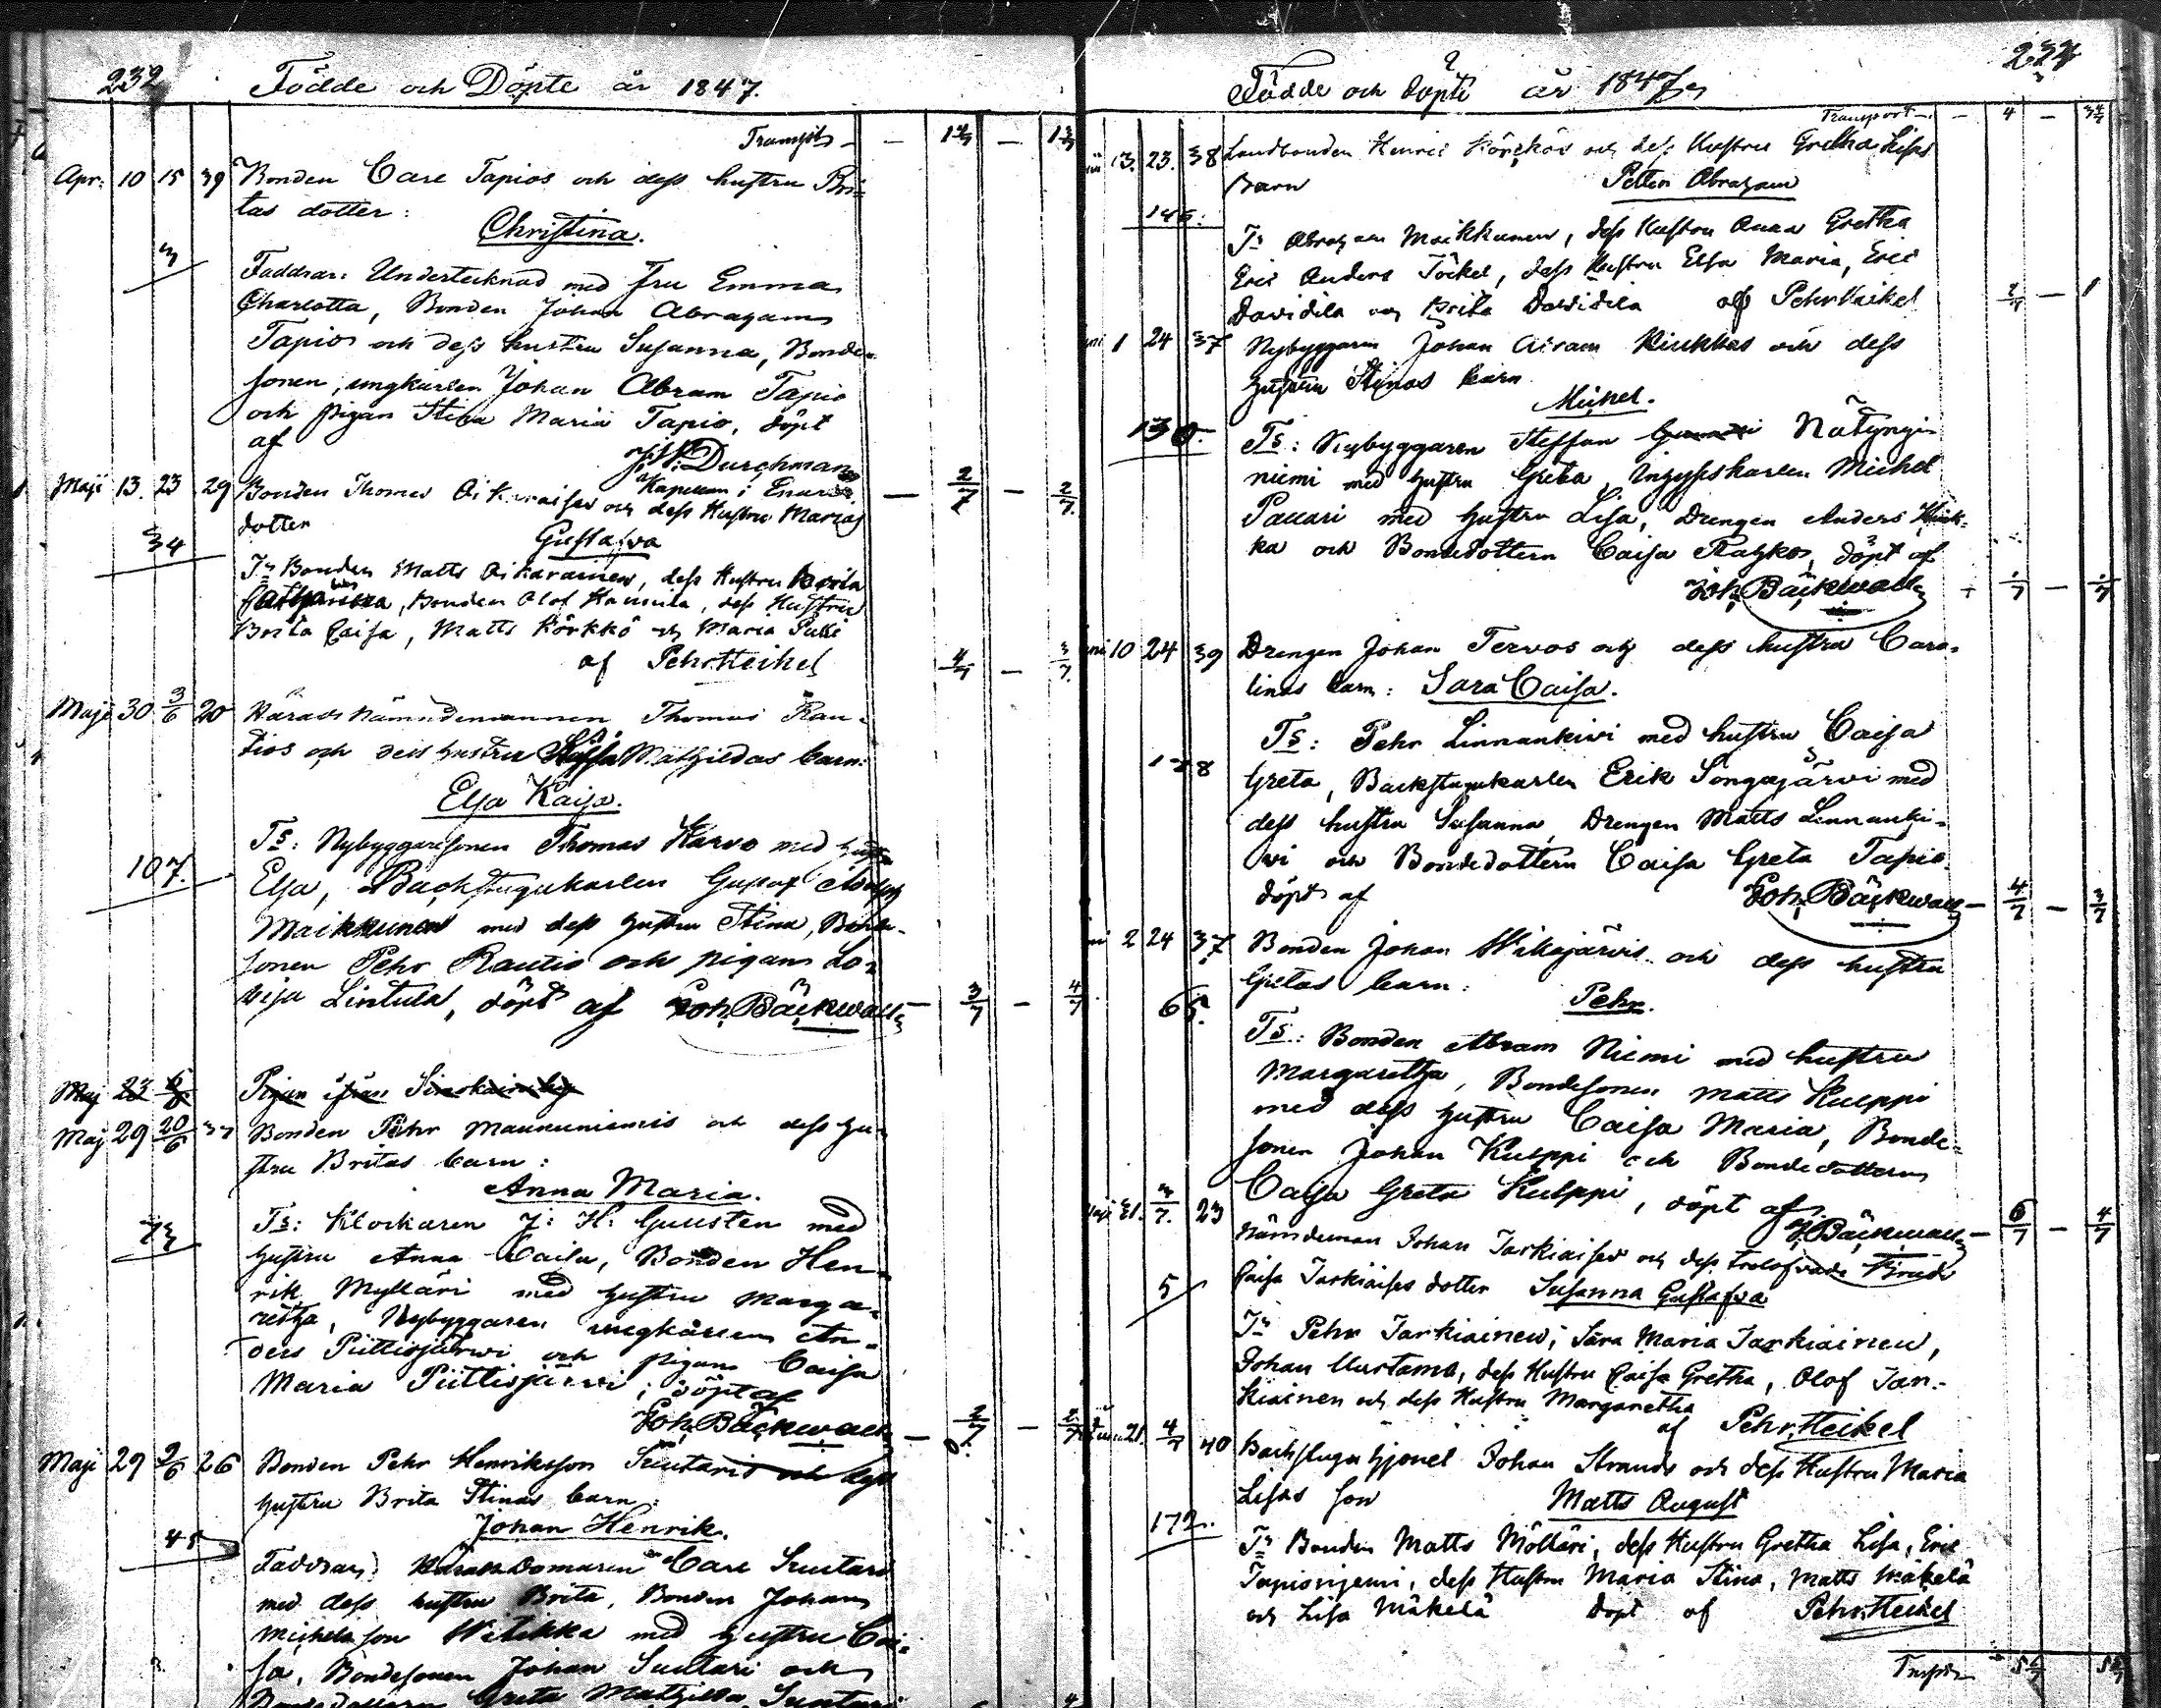 232 Födde och Döpte år 1847.
Transpt
Apr. 10 15 39 Bonden Carl Tapios och dess hustru Bri-
tas dotter:
Christina.
Faddrar: Undertecknad med Fru Emma
Charlotta, Bonden Johan Abrahams
Tapios och dess hustru Susanna, Bonde-
sonen, ungkarlen Johan Abram Tapio
och pigan Stina Maria Tapio, döpt
af
Durchman
Kapellan i Enare
Maji 13. 23 29 Bonden Thomas Aikaraises och dess Hustru Marias
dotter Gustafva
34
Ts Bonden Matts Aikarainen, dess Hustru Brita
Bonden Olof Hannila, dess Hustru
Brita Caisa, Matts Körkkö och Maria Pulli
af Pehr Heikel
Maji 30 3/6 20 Härads Nämndemannen Thomas Rau-
tios och dess hustru Mathildas barn:
Elsa Kaisa.
107. Ts: Nybyggaresonen Thomas Karvo med hustru
Elsa, Backstugukarlen Gustaf Adolph
Maikkunen med dess hustru Stina, Bonde-
sonen Pehr Rautio och pigan Lo-
visa Lintula, döpt af Joh. Bäckwall
Maj 23
Maj 29 20/6 Bonden Pehr Maununiemis och dess hu-
stru Britas barn:
Anna Maria.
73 Ts: Klockaren J: H: Gullsten med
hustru Anna Caisa, Bonden Hen-
rik Mylläri med hustru Marga-
retha, Nybyggaren ungkarlen An-
ders Piittisjärwi och pigan Caisa
Maria Piittisjärwi, döpt af
Joh. Bäckwall
Maji 29 2/6 26 Bonden Pehr Henriksson Suutaris och dess
hustru Brita Stinas barn:
Johan Henrik.
45 Faddrar: Häradsdomaren Carl Suutari
med dess hustru Brita, Bonden Johan
Michelsson Witikka med hustru Cai-
sa, Bondesonen Johan Suutari och
Bondedottern Greta Mathilda Suutari
Födde och döpte år 1847
Transport
13. 23. 38 Landbonden Henric Körkkös och dess Hustru Gretha Lisas
barn Petter Abraham
146.
Ts Abraham Maikkunen, dess Hustru Anna Gretha
Eric Anders Jöckel, dess Hustru Elsa Maria, Eric
Davidila och Brita Davidila af Pehr Heikel
1 24 37 Nybyggaren Johan Airam Kiukkas och dess
hustru Stinas barn
Mickel.
130. Ts: Nybyggaren Steffan Nätyngi-
niemi med hustru Greta, Inhyseskarlen Michel
Paccari med hustru Lisa, Drengen Anders
ka och Bondedottern Caisa döpt af
Joh. Bäckwall
10 24 39 Drengen Johan Tervos och dess hustru Caro-
linas barn: Sara Caisa.
Ts: Pehr Linnankivi med hustru Caisa
178 Greta, Backstugukarlen Erik Songajärvi med
dess hustru Susanna, Drengen Matts Linnanki-
vi och Bondedottern Caisa Greta Tapio
döpt af Joh. Bäckwall
2 24 37 Bonden Johan Wikajärvis och dess hustru
Gretas barn: Pehr.
65. Ts: Bonden Abram Niemi med hustru
Margaretha, Bondesonen Matts Kulppi
med dess hustru Caisa Maria, Bonde-
sonen Johan Kulppi och Bondedottern
Caisa Greta Kulppi, döpt af
J. Bäckwall
Maji 31. 4/7. 23 Nämndeman Johan Jarkiaises och dess trolofvade Brud
5 Caisa Jarkiaises dotter Susanna Gustafva
Ts Pehr Jarkiainen, Sara Maria Jarkiainen,
Johan Uurtamo, dess Hustru Caisa Gretha, Olof Jar-
kiainen och dess Hustru Margaretha
af Pehr Heikel
21. 4/7 40 Backstuguhjonet Johan Strands och dess Hustru Maria
Lisas son Matts August
172.
Ts Bonden Matts Mölläri, dess Hustru Gretha Lisa, Eric
Tapioniemi, dess Hustru Maria Stina, Matts Mäkelä
och Lisa Mäkelä döpt af Pehr Heikel